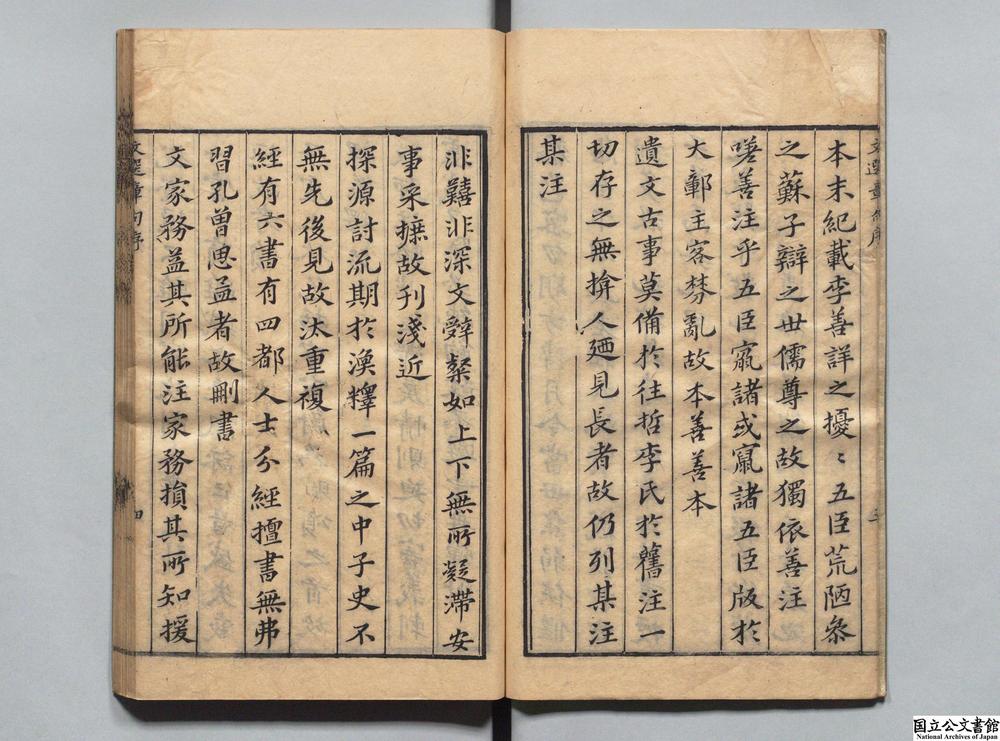 本末紀載李善詳之擾〻五臣荒陋叅
之蘇子辯之世儒尊之故獨依善注
嗟善注乎五臣竄諸或竄諸五臣版於
大鄣主客棼亂故本善善本
遺文古事莫備於往哲李氏於舊注一
切存之無揜人廼見長者故仍列某注
某注
非囏非深文辭粲如上下無所疑滯安
事采摭故刊淺近
探源討流期於渙釋一篇之中子史不
無先後見故汰重複
經有六書有四都人士分經擅書無弗
習孔曾思孟者故刪書
文家務益其所能注家務損其所知援
文選章句序
四
国立公文書館
National Archives of Japan